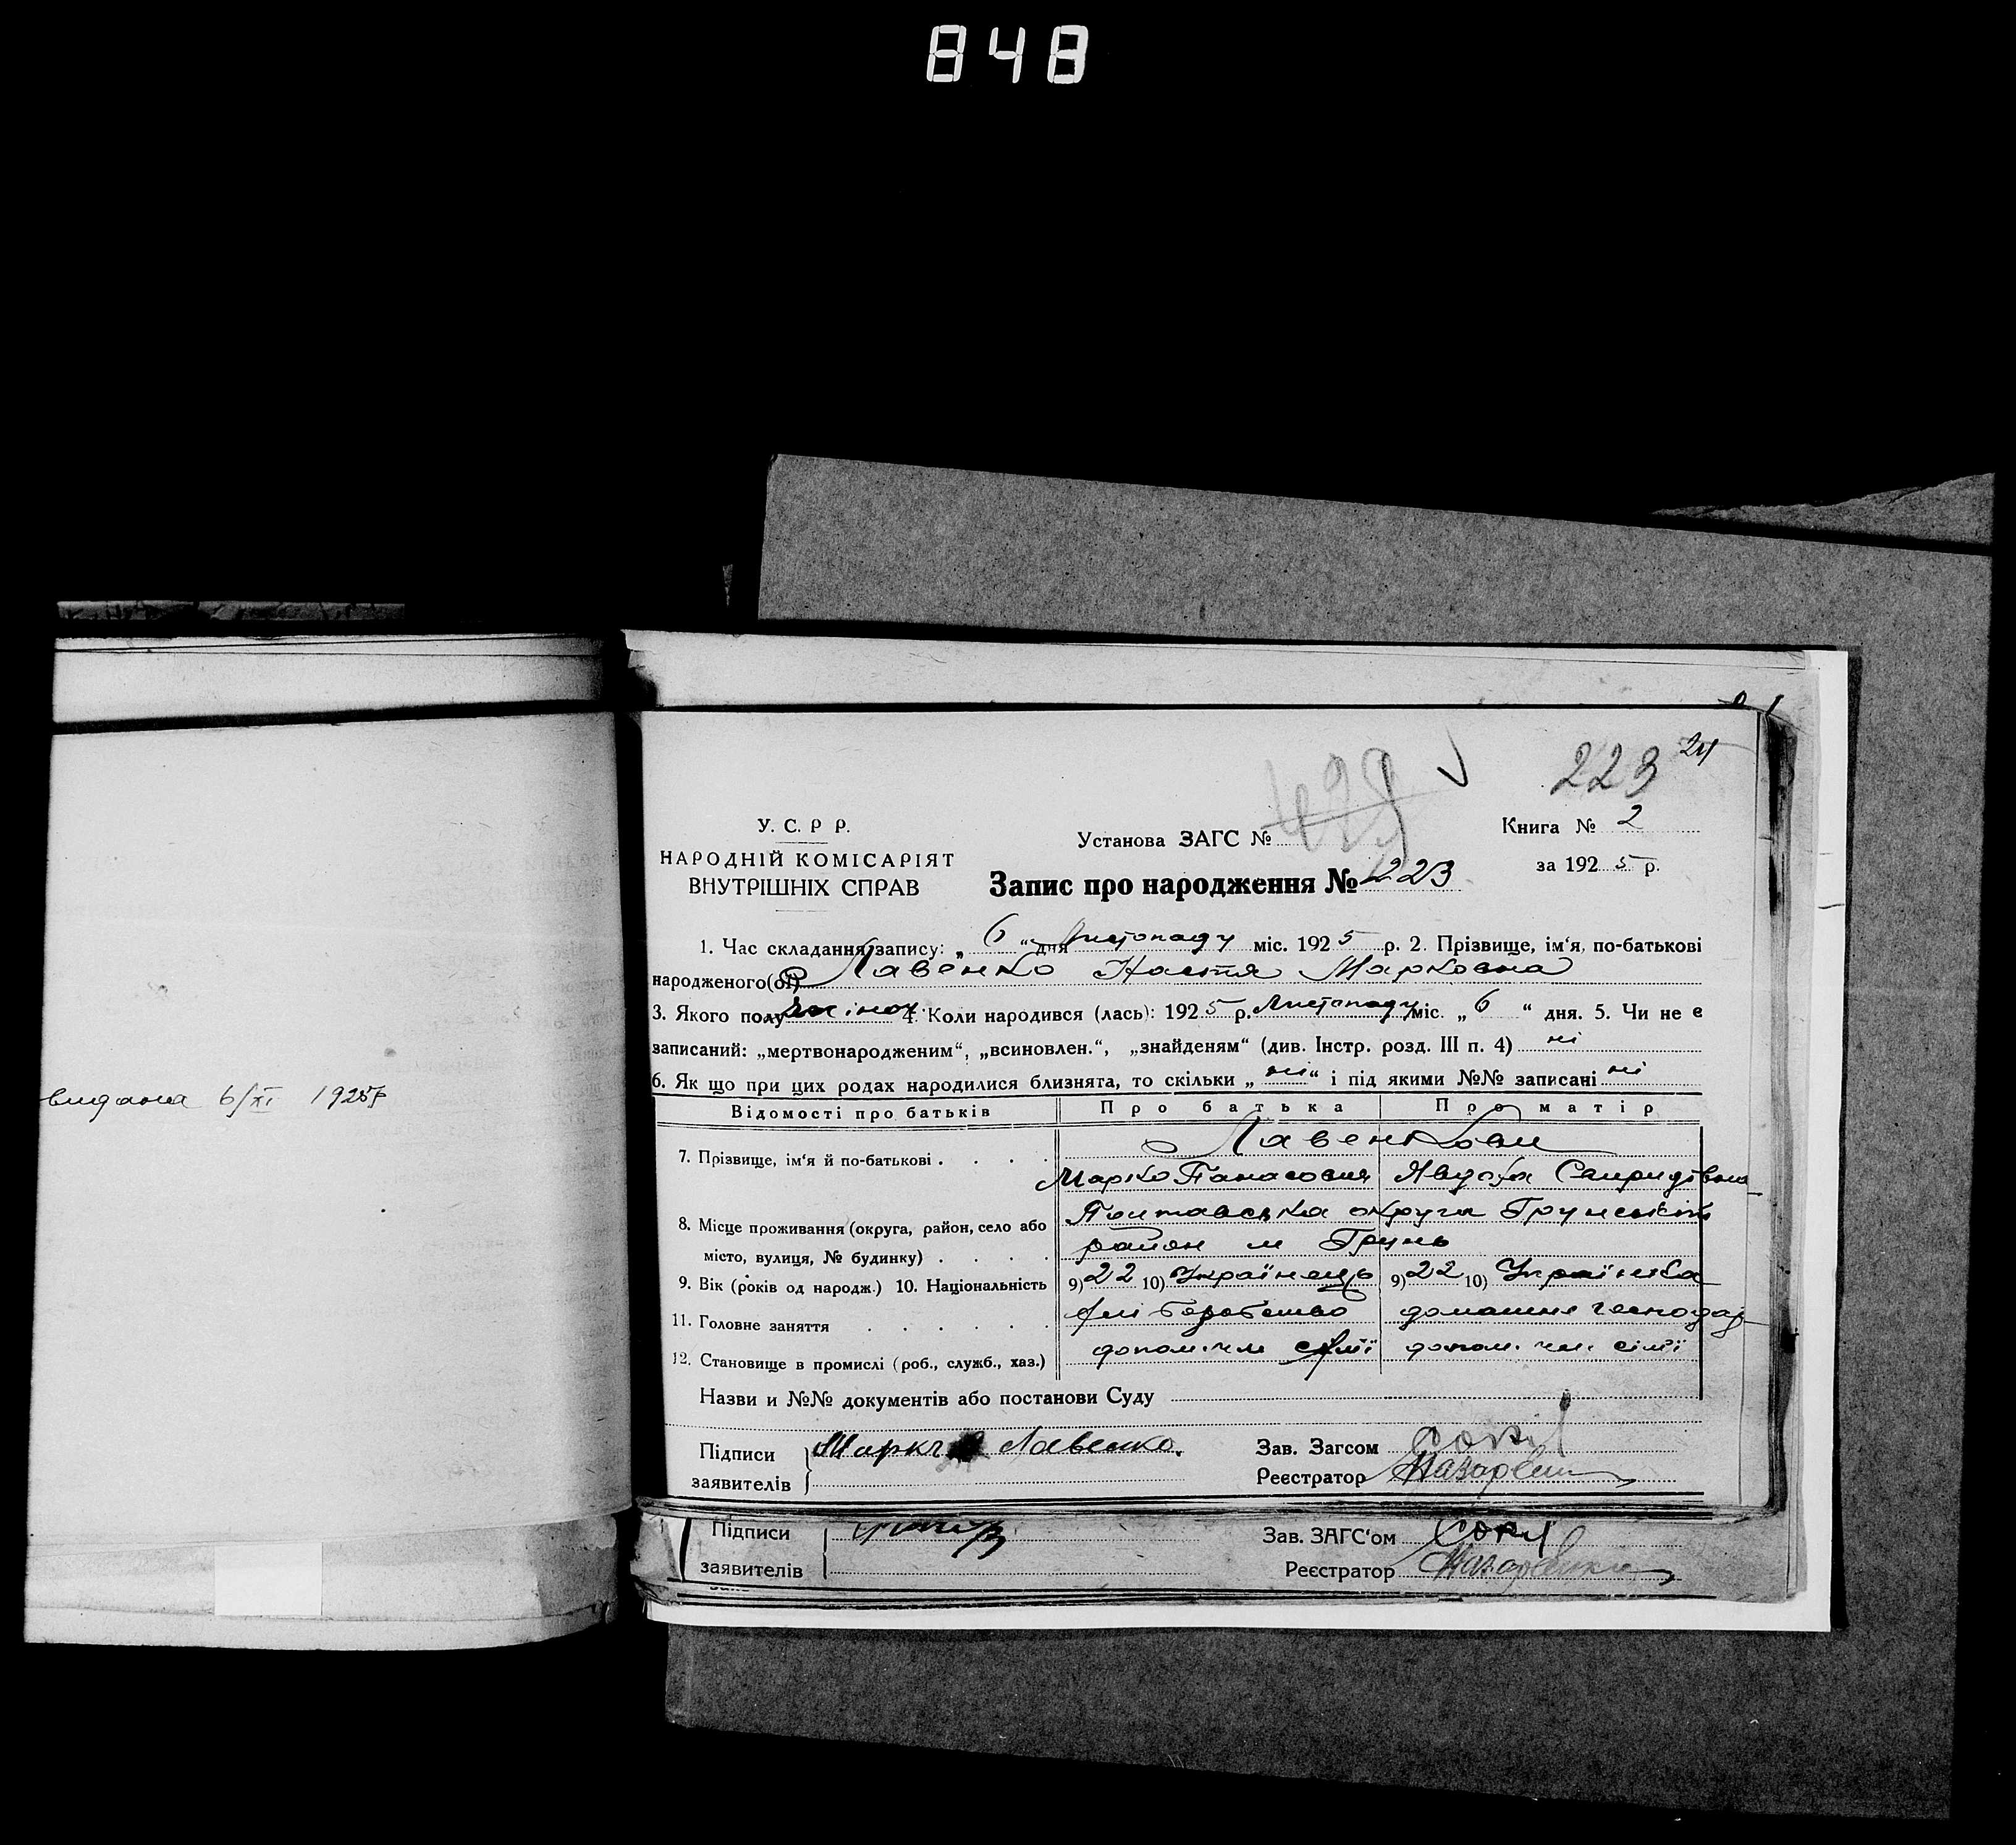 848
видана 6/XI 1925 р
24
223
У. С. Р Р.
НАРОДНІЙ КОМІСАРІЯТ
ВНУТРІШНІХ СПРАВ
Установа ЗАГС №
Книга № 2
за 1925 р.
Запис про народження № 223
1. Час складання запису: „ 6 “ дня Листопаду міс. 1925 р. 2. Прізвище, ім‘я, по-батькові
народженого(ої) Лавенко Настя Марковна
3. Якого полу жінок. 4. Коли народився (лась): 1925 р. Листопаду міс. „ 6 “ дня. 5. Чи не є
записаний: „мертвонародженим“, „всиновлен.“, „знайденям“ (див. Інстр. розд. III п. 4) ні
6. Як що при цих родах народилися близнята, то скільки „ ні “ і під якими №№ записані ні
Відомості про батьків Про батька Про матір
7. Прізвище, ім‘я й по-батькові . . . . Лавенкови
Марко Панасович Явдоха Спиридівна
8. Місце проживання (округа, район, село або Полтавська округа Грунський
місто, вулиця, № будинку) . . . . район м Грунь
9. Вік (років од народж.) 10. Національність 9) 22 10) Українець 9) 22 10) Українка
11. Головне заняття . . . . . . хліборобство домашнє господар
12. Становище в промислі (роб., служб., хаз.) допом. чл. сімї допом. чл. сімї
Назви и №№ документів або постанови Суду
Підписи Марко Лавенко. Зав. Загсом
заявителів Реєстратор
Підписи Зав. ЗАГС‘ом
заявителів Реєстратор